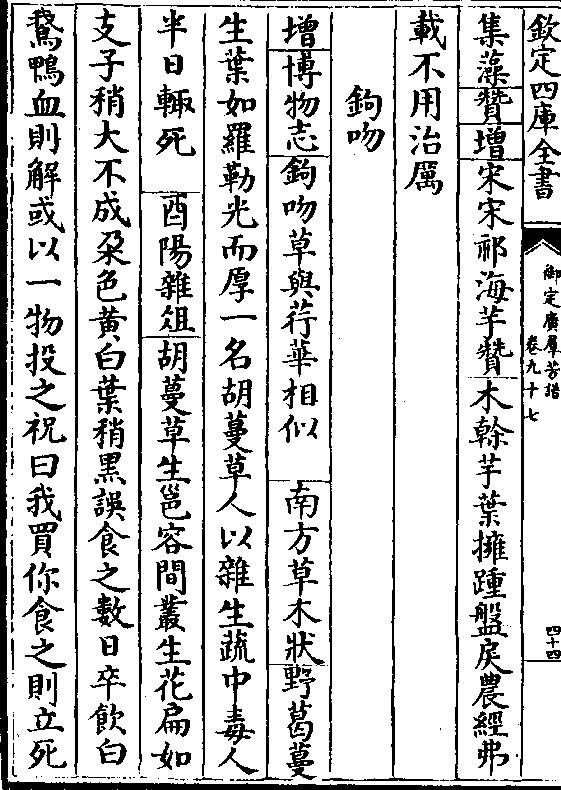 欽定四庫全書
御定廣羣芳譜
卷九十七
四十四
集藻贊增宋宋祁海芋贊木榦芋葉擁踵盤戾農經弗
載不用治厲
鉤吻
增博物志鉤吻草與荇華相似　南方草木狀野葛蔓
生葉如羅勒光而厚一名胡蔓草人以雜生蔬中毒人
半日輒死　酉陽雜俎胡蔓草生邕容間叢生花扁如
支子稍大不成朶色黄白葉稍黑誤食之數日卒飲白
鵞鴨血則解或以一物投之祝曰我買你食之則立死